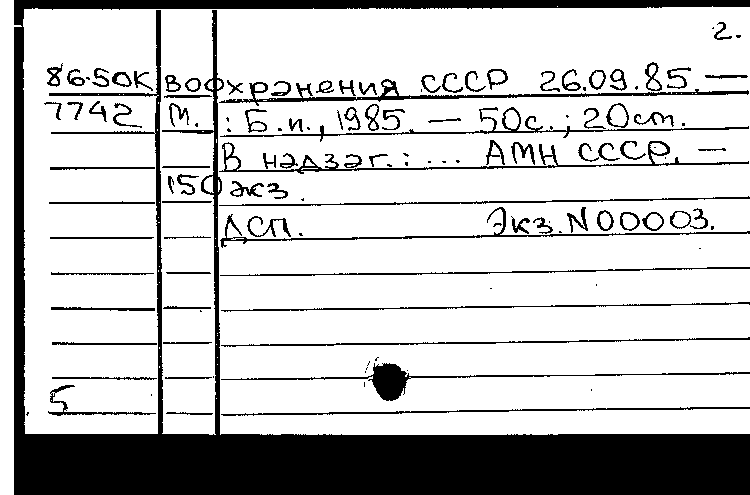 2.
86-50К воохранения СССР 26.09.85. —
7742 М. : Б.и., 1985. — 50с.; 20см.
В надзаг.: ... АМН СССР. —
150 экз.
ДСП. Экз. N00003.
5